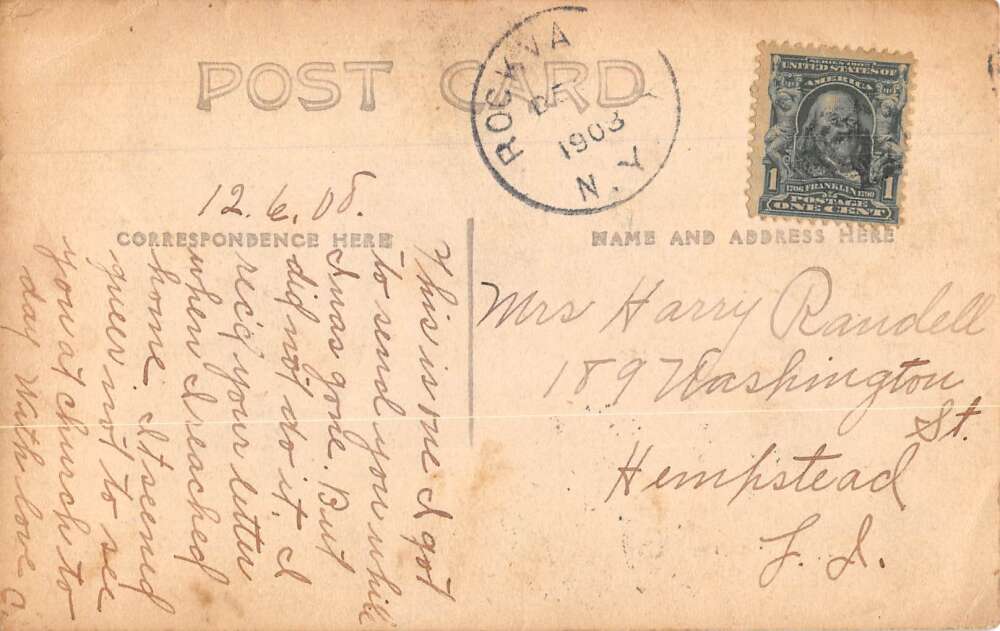 POST CARD
ROCKVA
DE
1908
N.Y.
SERIES 1902
UNITED STATES OF
AMERICA
1 1
1706 FRANKLIN 1790
POSTAGE
ONE CENT
12.6.08.
CORRESPONDENCE HERE
NAME AND ADDRESS HERE
This is one I got
to send you while
I was gone. But
did not do it. I
rec'd your letter
when I reached
home. It seemd
queer not to see
you at church to
day. With love C.
Mrs Harry Randell
189 Washington
St.
Hempstead
L. I.